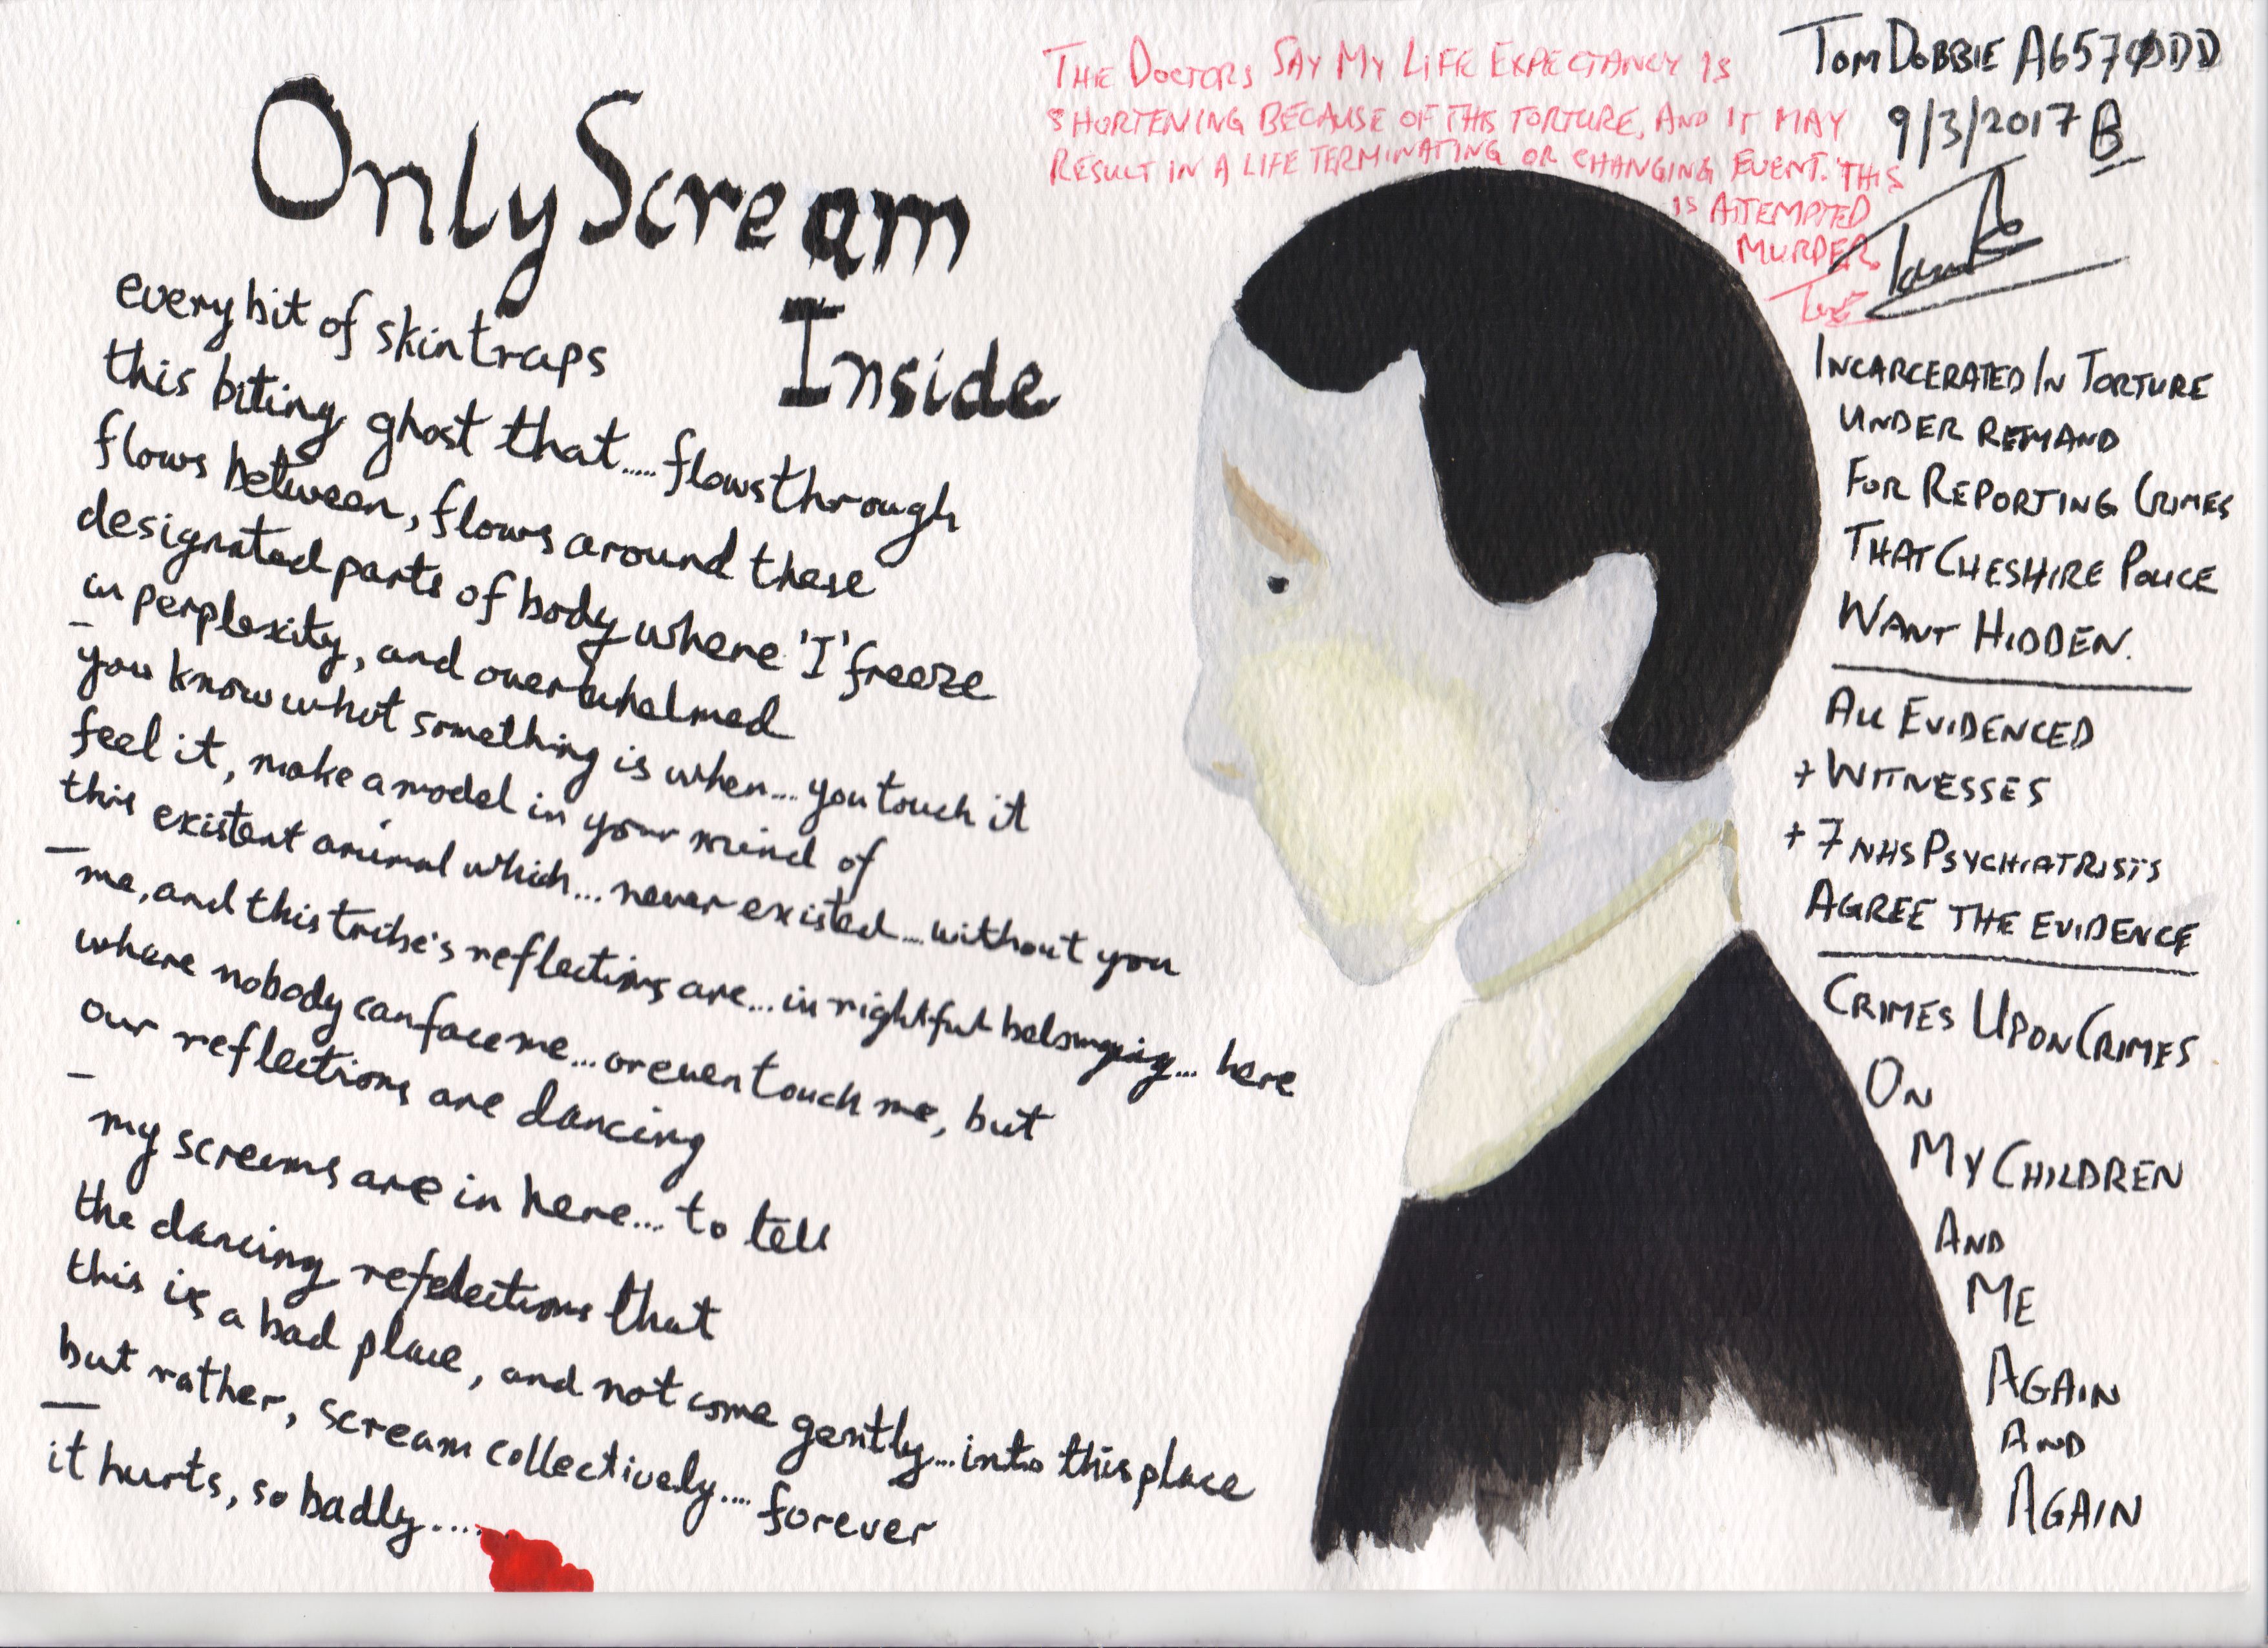 Only Scream
Inside
every bit of skin traps
this biting ghost that..... flows through
flows between, flows around these
designated parts of body where 'I' freeze
in perplexity, and overwhelmed
you know what something is when... you touch it
feel it, make a model in your mind of
this existent animal which... never existed... without you
me, and this tribe's reflections are... in rightful belonging... here
where nobody can face me... or even touch me, but
our reflections are dancing
my screams are in here... to tell
the dancing refelections that
this is a bad place, and not come gently... into this place
but rather, scream collectively.... forever
it hurts, so badly......
THE DOCTORS SAY MY LIFE EXPECTANCY IS
SHORTENING BECAUSE OF THIS TORTURE, AND IT MAY
RESULT IN A LIFE TERMINATING OR CHANGING EVENT. THIS
IS ATTEMPTED
MURDER
TOM DOBBIE A6570DD
9/3/2017 B
INCARCERATED IN TORTURE
UNDER REMAND
FOR REPORTING CRIMES
THAT CHESHIRE POLICE
WANT HIDDEN.
ALL EVIDENCED
+ WITNESSES
+ 7 NHS PSYCHIATRISTS
AGREE THE EVIDENCE
CRIMES UPON CRIMES
ON
MY CHILDREN
AND
ME
AGAIN
AND
AGAIN